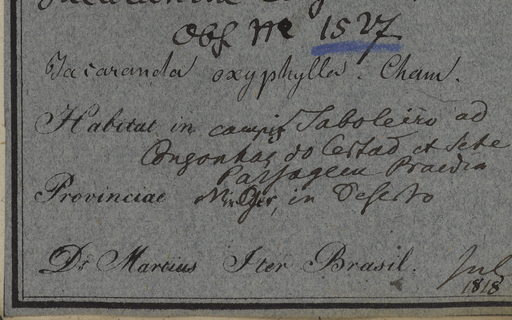 Obs. Nº 1527
Jacaranda oxyphylla. Cham.
Habitat in campis Taboleiro ad
Congonhas do Certad et Sete
Passagem Praedia
Provinciae Min Ger, in Deserto
Dr Martius Iter Brasil. Jul
1818